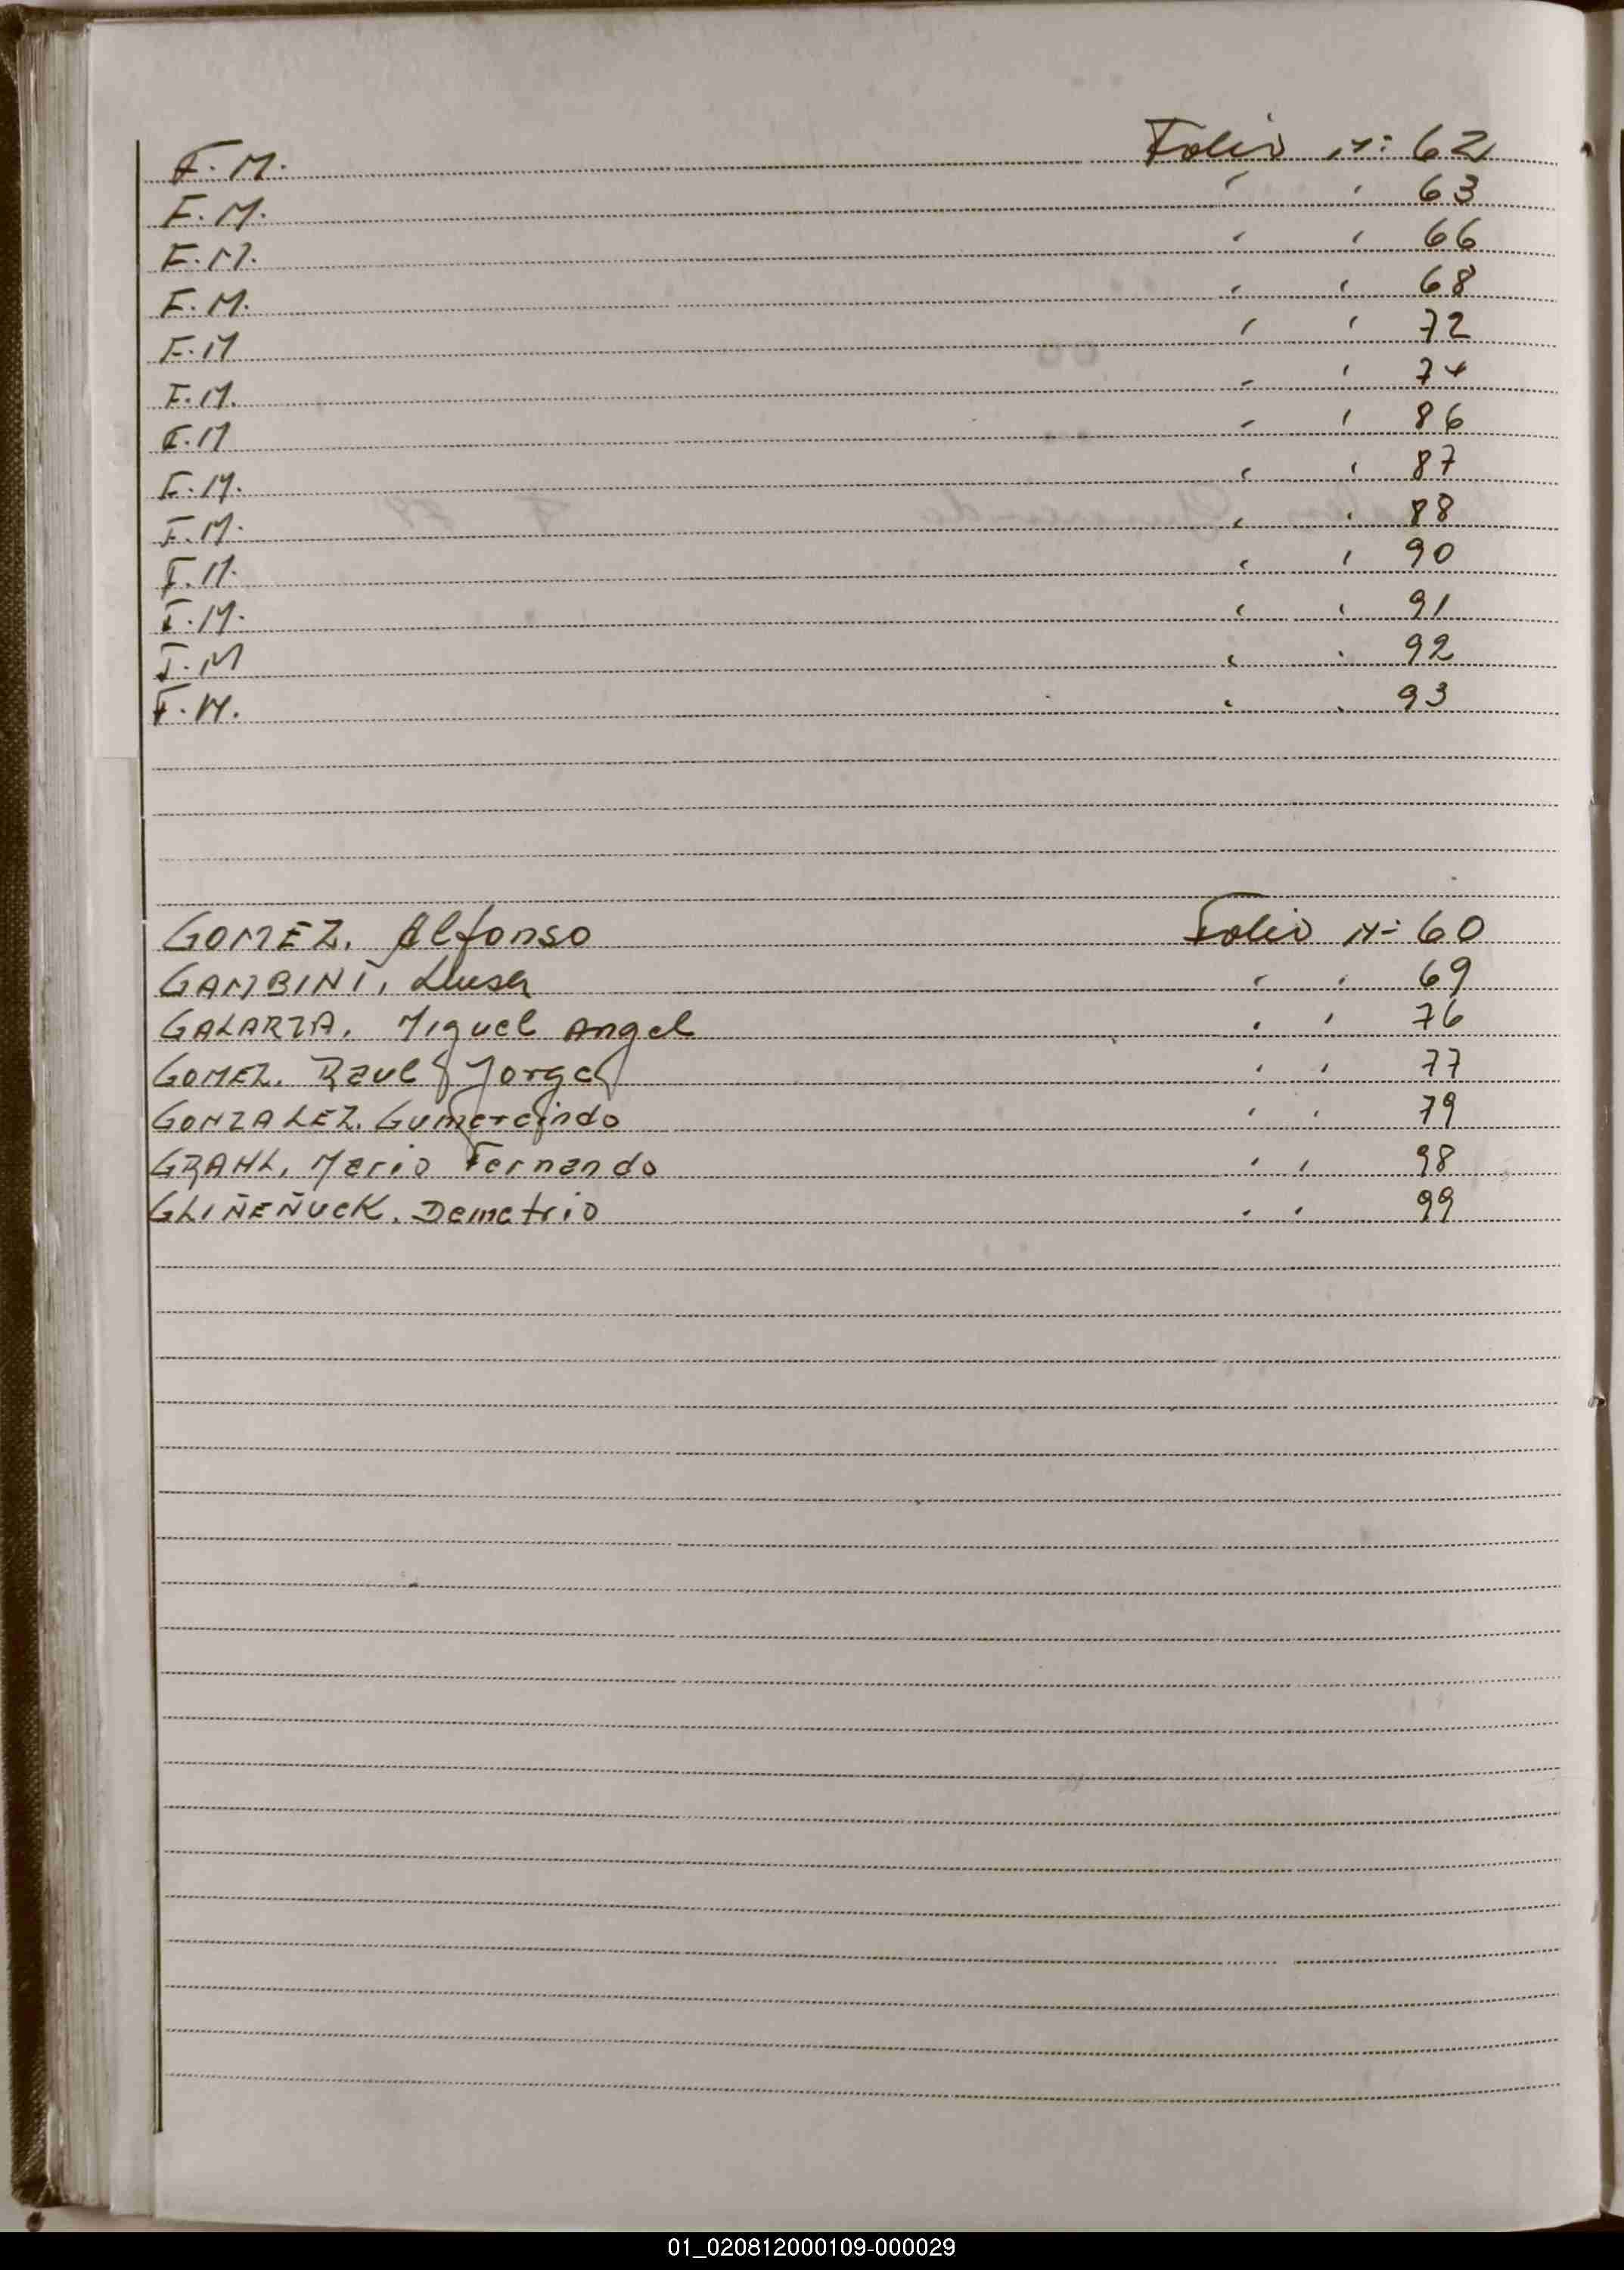 F.M. Folio N: 62
F.M. " " 63
F.M. " " 66
F.M. " " 68
F.M " " 72
F.M. " " 74
F.M " " 86
F.M. " " 87
F.M. " " 88
F.M. " " 90
F.M. " " 91
F.M " " 92
F.M. " " 93
GOMEZ, Alfonso Folio N= 60
GAMBINI, Luisa " " 69
GALARZA, Miguel Angel " " 76
GOMEZ, Raul Jorge " " 77
GONZALEZ, Gumercindo " " 79
GRAHL, Mario Fernando " " 98
GLIÑEÑUCK, Demetrio " " 99
01_020812000109-000029